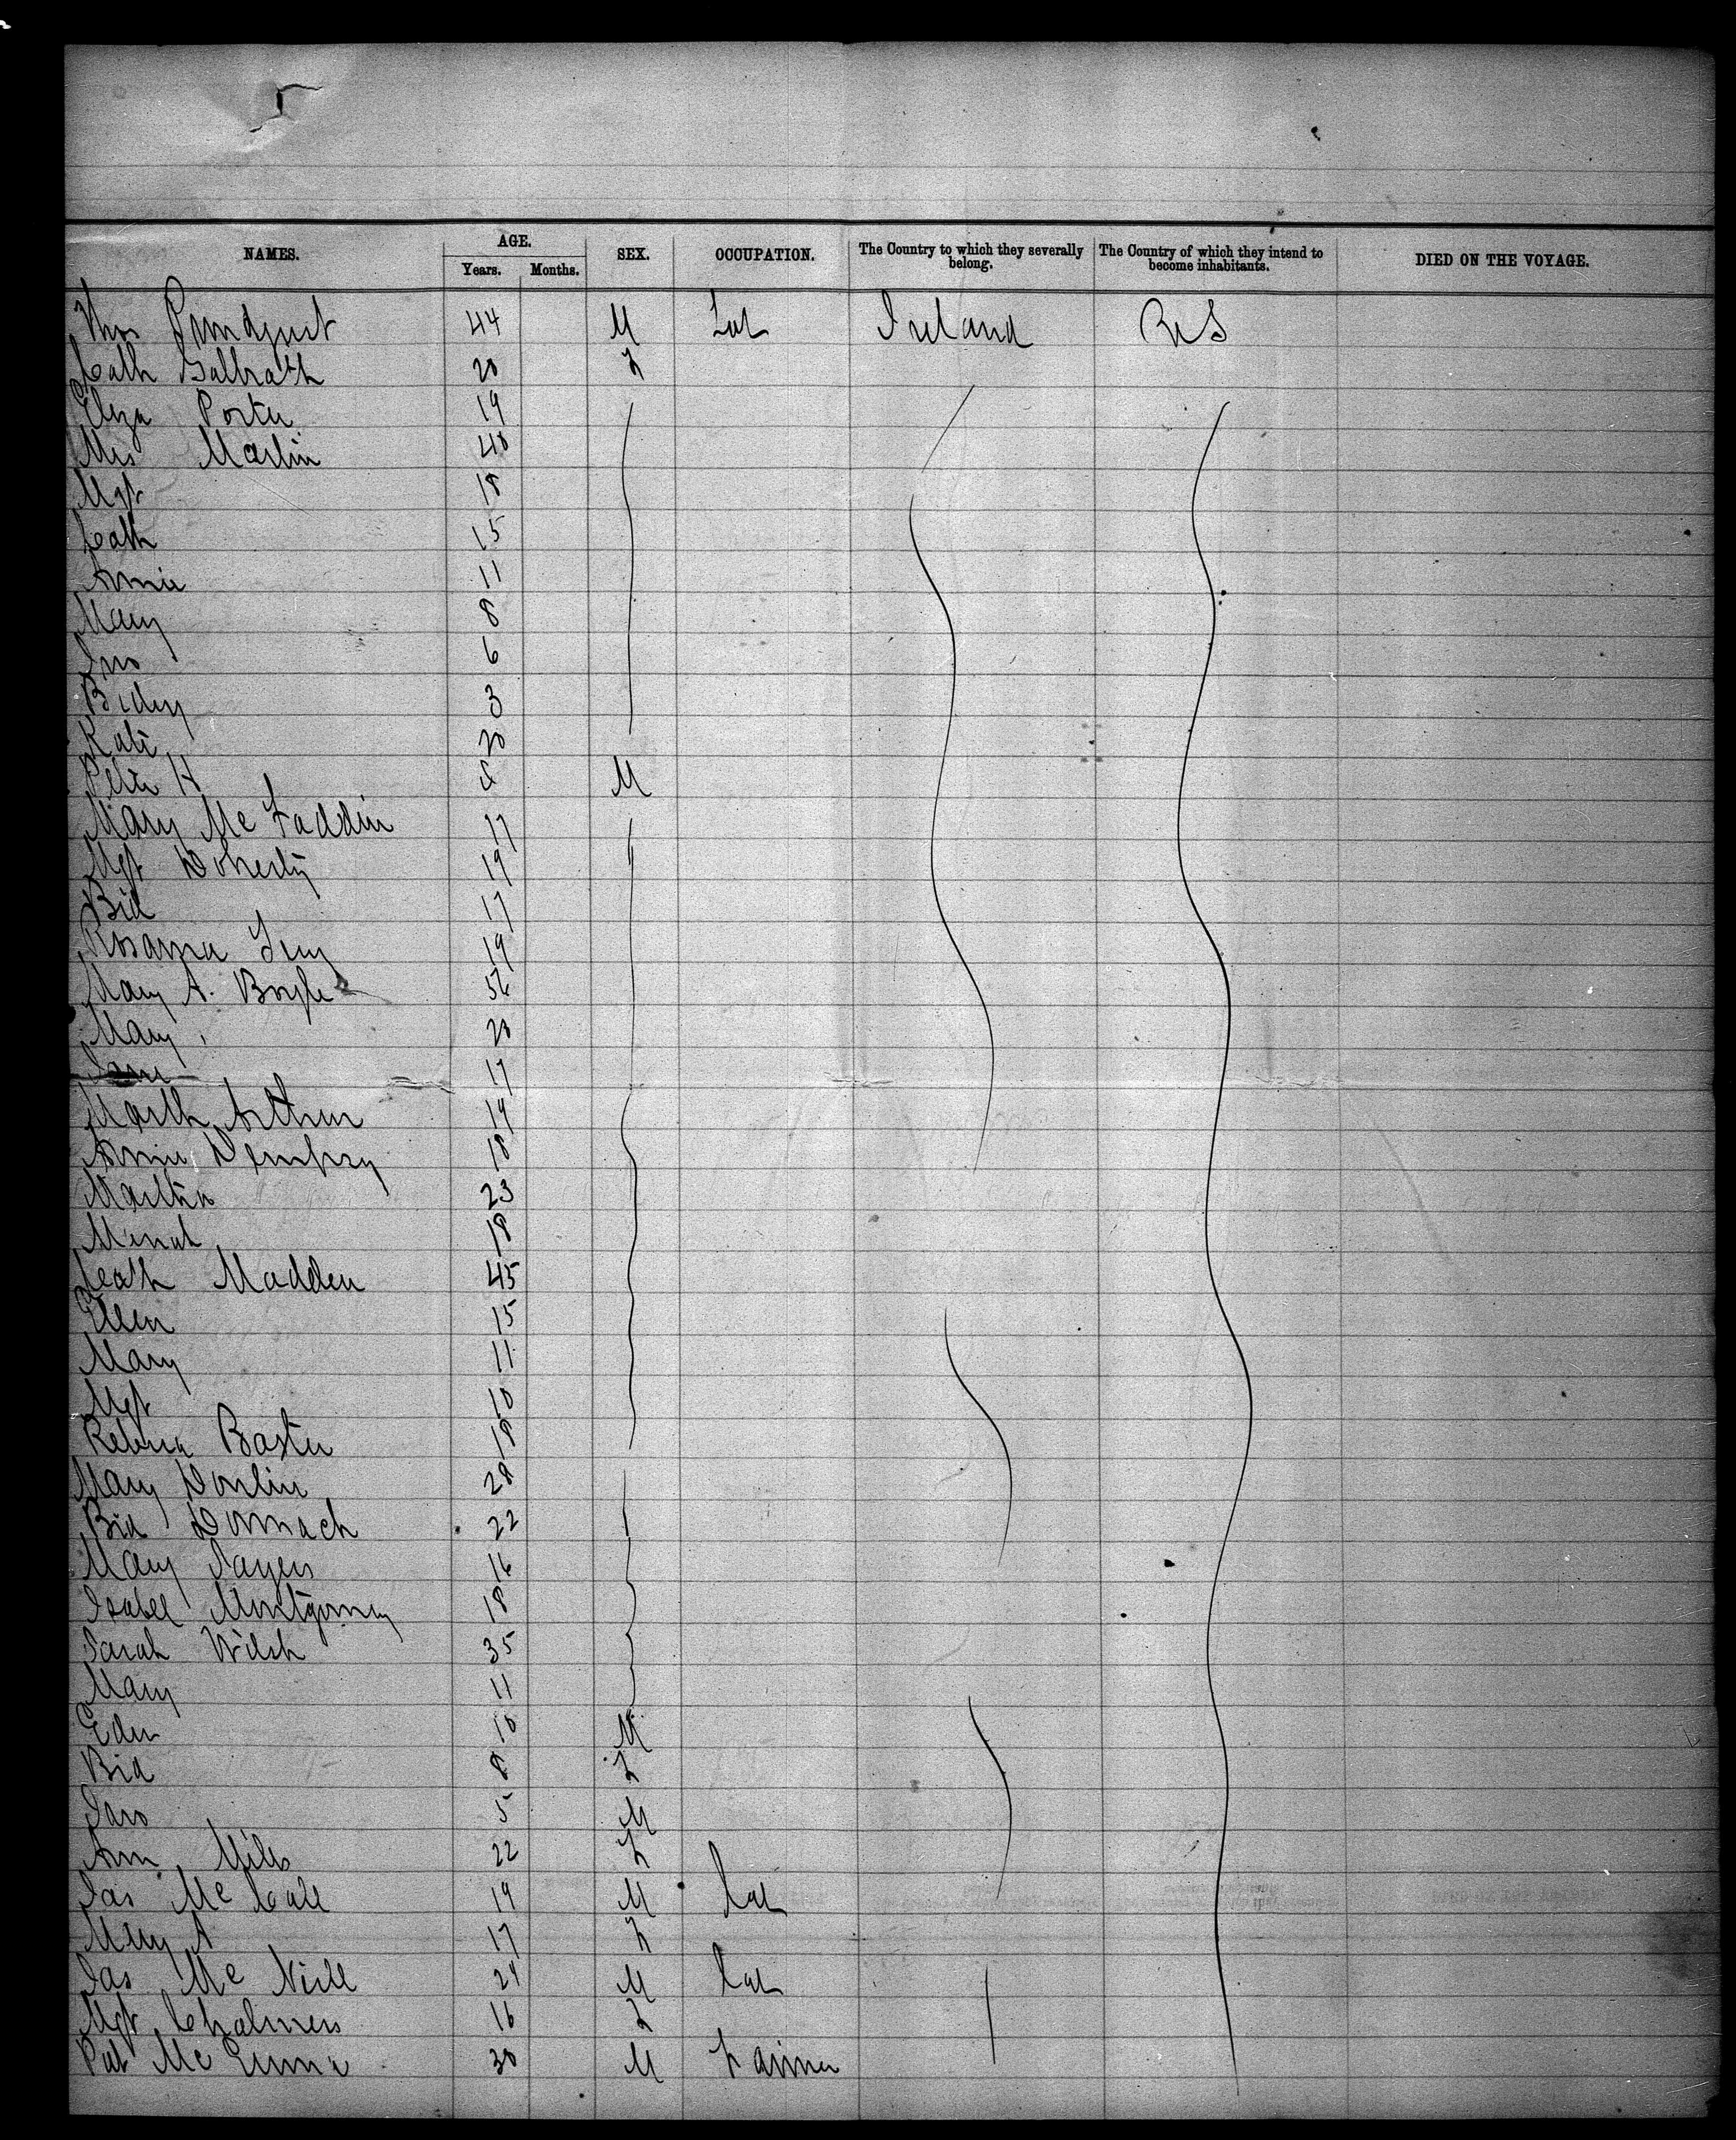 NAMES. AGE. Years. Months. SEX. OCCUPATION. The Country to which they severally belong. The Country of which they intend to become inhabitants. DIED ON THE VOYAGE.
Thos 44 M Lab Ireland US
Cath Galbrath 20 F
Eliza Porter 19
Mrs Martin 40
Mgt 18
Cath 15
Annie 11
Mary 8
Jno 6
Bidy 3
Kate 20
Peter H M
Mary McFaddin 17
Mgt Doherty 19
Bid 17
Rosanna 19
Mary A. Boyle 56
Mary 20
Jane 17
Marth Arthur 19
Annie Dempsey 18
Martha 23
Minah 18
Cath Madden 45
Ellen 15
Mary 11
Mgt 10
Rebecca Baxter 18
Mary Donlin 28
Bid Dornach 22
Mary Sayers 16
Isabel Montgomey 18
Sarah Welsh 35
Mary 11
Edw 10 M
Bid 8 F
Jas 5 M
Ann Miles 22 F
Jas McCall 19 M Lab
Mary A 17 F
Jas McNeill 24 M Lab
Mgt Chalmers 16 F
Pat Mc 30 M Farmer